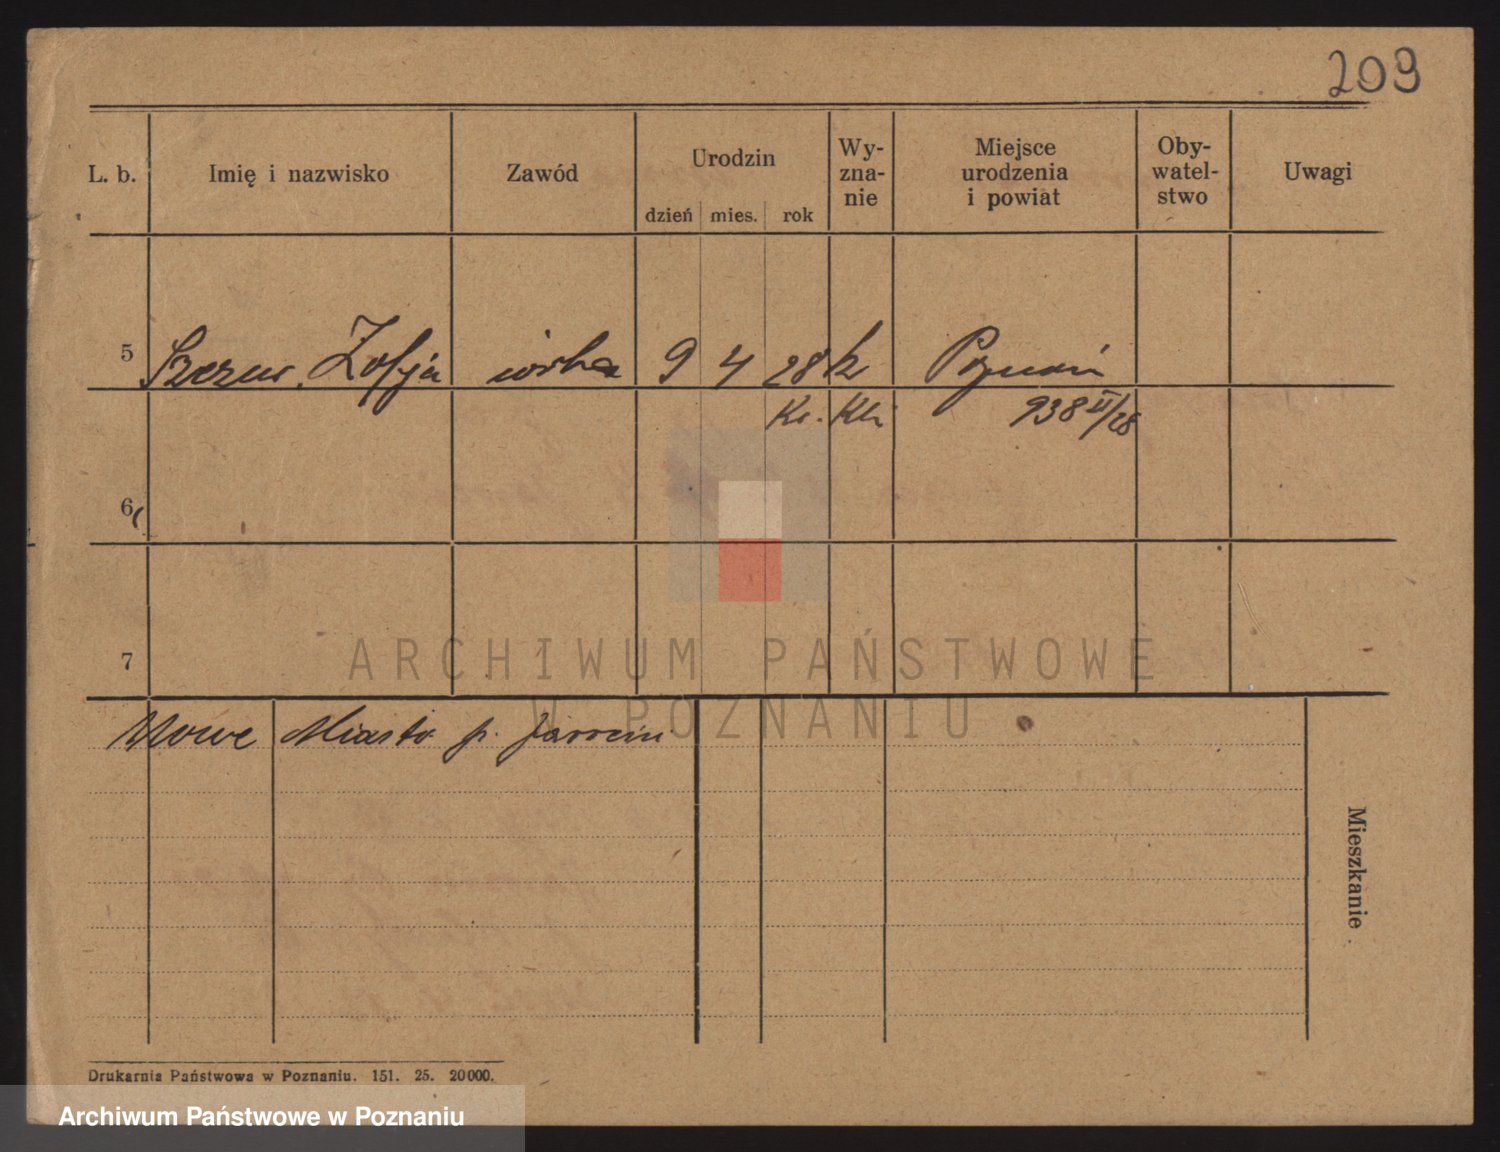 209
L. b. Imię i nazwisko Zawód Urodzin dzień mies. rok Wy-zna-nie Miejsce urodzenia i powiat Oby-watel-stwo Uwagi
5 Zofja córka 9 4 28 k Poznań
938 II/28
6
7
ARCHIWUM PAŃSTWOWE
W POZNANIU
Nowe Miasto p. Jarocin
Mieszkanie
Drukarnia Państwowa w Poznaniu. 151. 25. 20000.
Archiwum Państwowe w Poznaniu